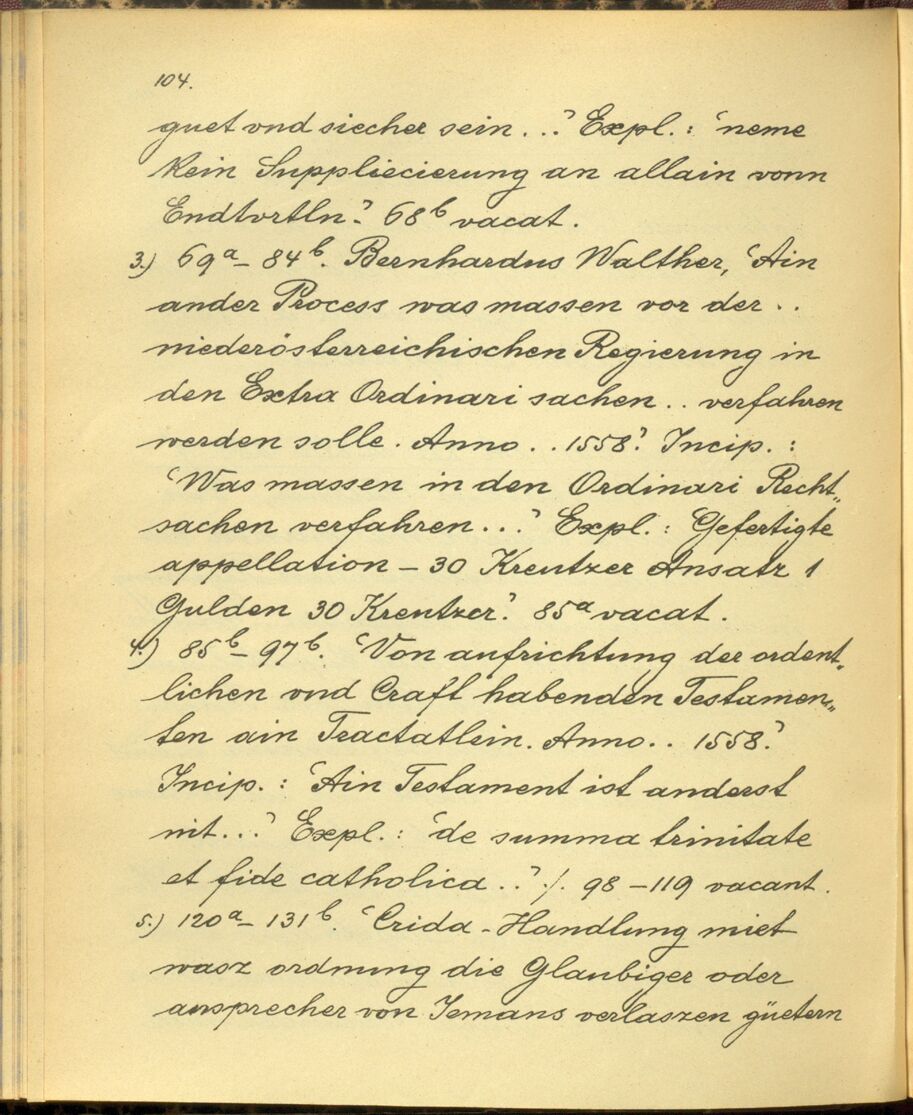 104.
guet vnd siecher sein...' Expl.: 'neme
kein Suppliecierung an allain vonn
Endtvrtln.' 68b vacat.
3.) 69a – 84b. Bernhardus Walther, 'Ain
ander Process was massen vor der ..
niederösterreichischen Regierung in
den Extra Ordinari sachen .. verfahren
werden solle. Anno .. 1558.' Incip.:
'Was massen in den Ordinari Recht„
sachen verfahren...' Expl.: Gefertigte
appellation – 30 Kreutzer Ansatz 1
Gulden 30 Kreutzer.' 85a vacat.
4.) 85b – 97b. 'Von aufrichtung der ordent„
lichen vnd Craft habenden Testamen„
ten ain Tractatlein. Anno .. 1558.'
Incip.: 'Ain Testament ist anderst
nit...' Expl.: 'de summa trinitate
et fide catholica ..' ./. 98 – 119 vacant.
5.) 120a – 131b. 'Crida-Handlung miet
wasz ordnung die Glaubiger oder
ansprecher von Jemans verlaszen güetern